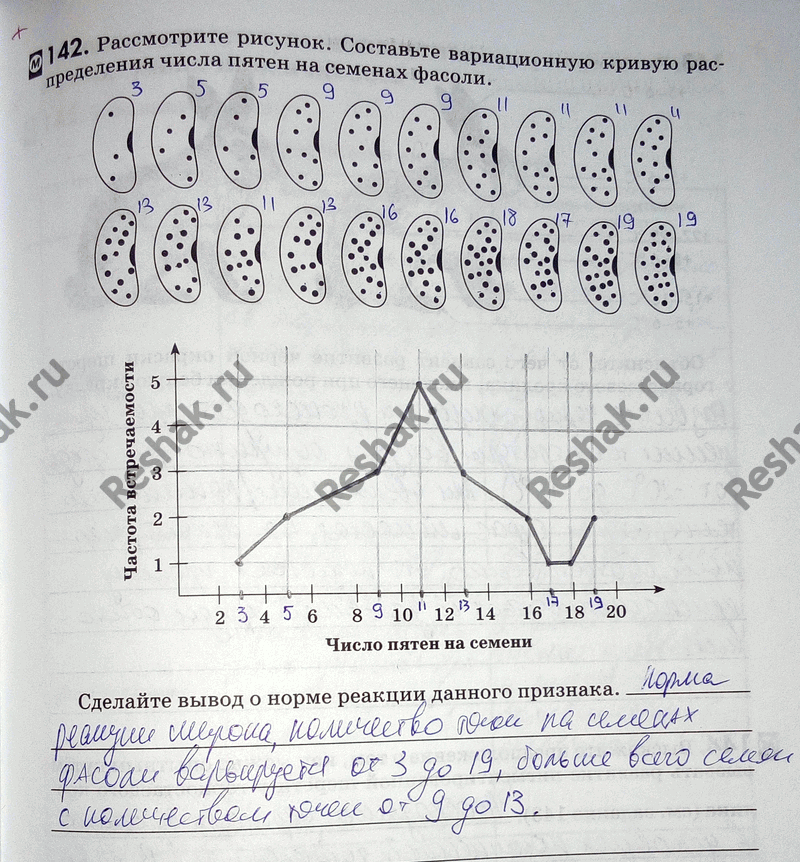 142. Рассмотрите рисунок. Составьте вариационную кривую рас-
пределения числа пятен на семенах фасоли.
3 5 5 9 9 9 11 11 11 11
13 13 11 13 16 16 18 17 19 19
Частота встречаемости
5
4
3
2
1
2 3 4 5 6 8 9 10 11 12 13 14 16 17 18 19 20
Число пятен на семени
Сделайте вывод о норме реакции данного признака. Норма
реакции широка, количество точек на семенах
фасоли варьируется от 3 до 19, больше всего семян
с количеством точек от 9 до 13.
Reshak.ru
Reshak.ru
Reshak.ru